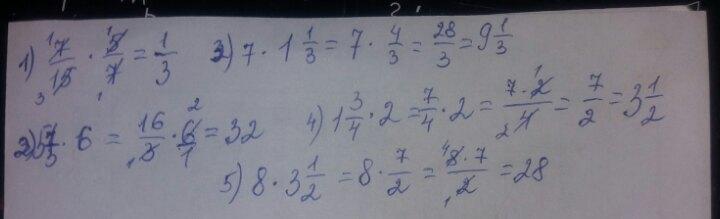 1) 7/15 · 5/7 = 1/3
3) 7 · 1 1/3 = 7 · 4/3 = 28/3 = 9 1/3
2) 5 1/3 · 6 = 16/3 · 6/1 = 32
4) 1 3/4 · 2 = 7/4 · 2 = 7·2/4 = 7/2 = 3 1/2
5) 8 · 3 1/2 = 8 · 7/2 = 8·7/2 = 28